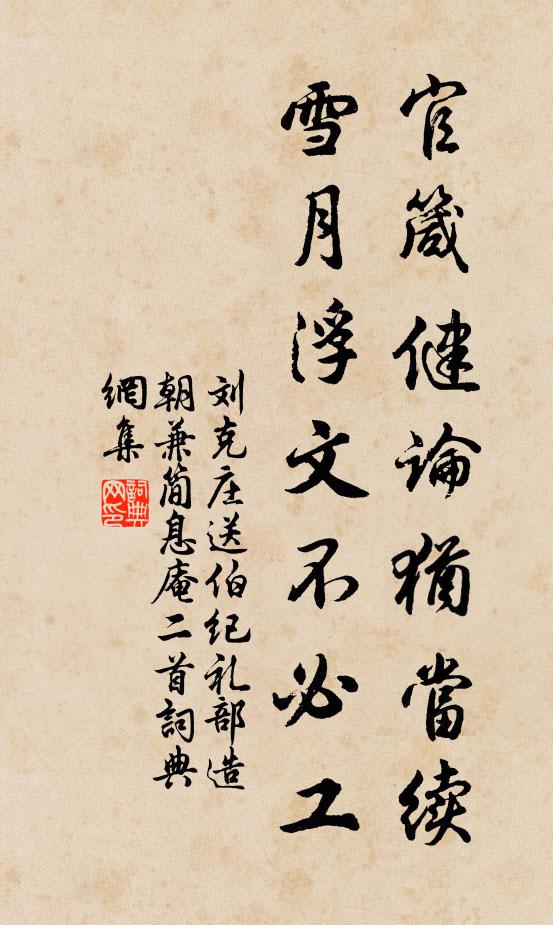 官箴健論猶當续
雪月浮文不必工
刘克庄送伯纪礼部造
朝兼简息庵二首詞典
網集
詞典
网印